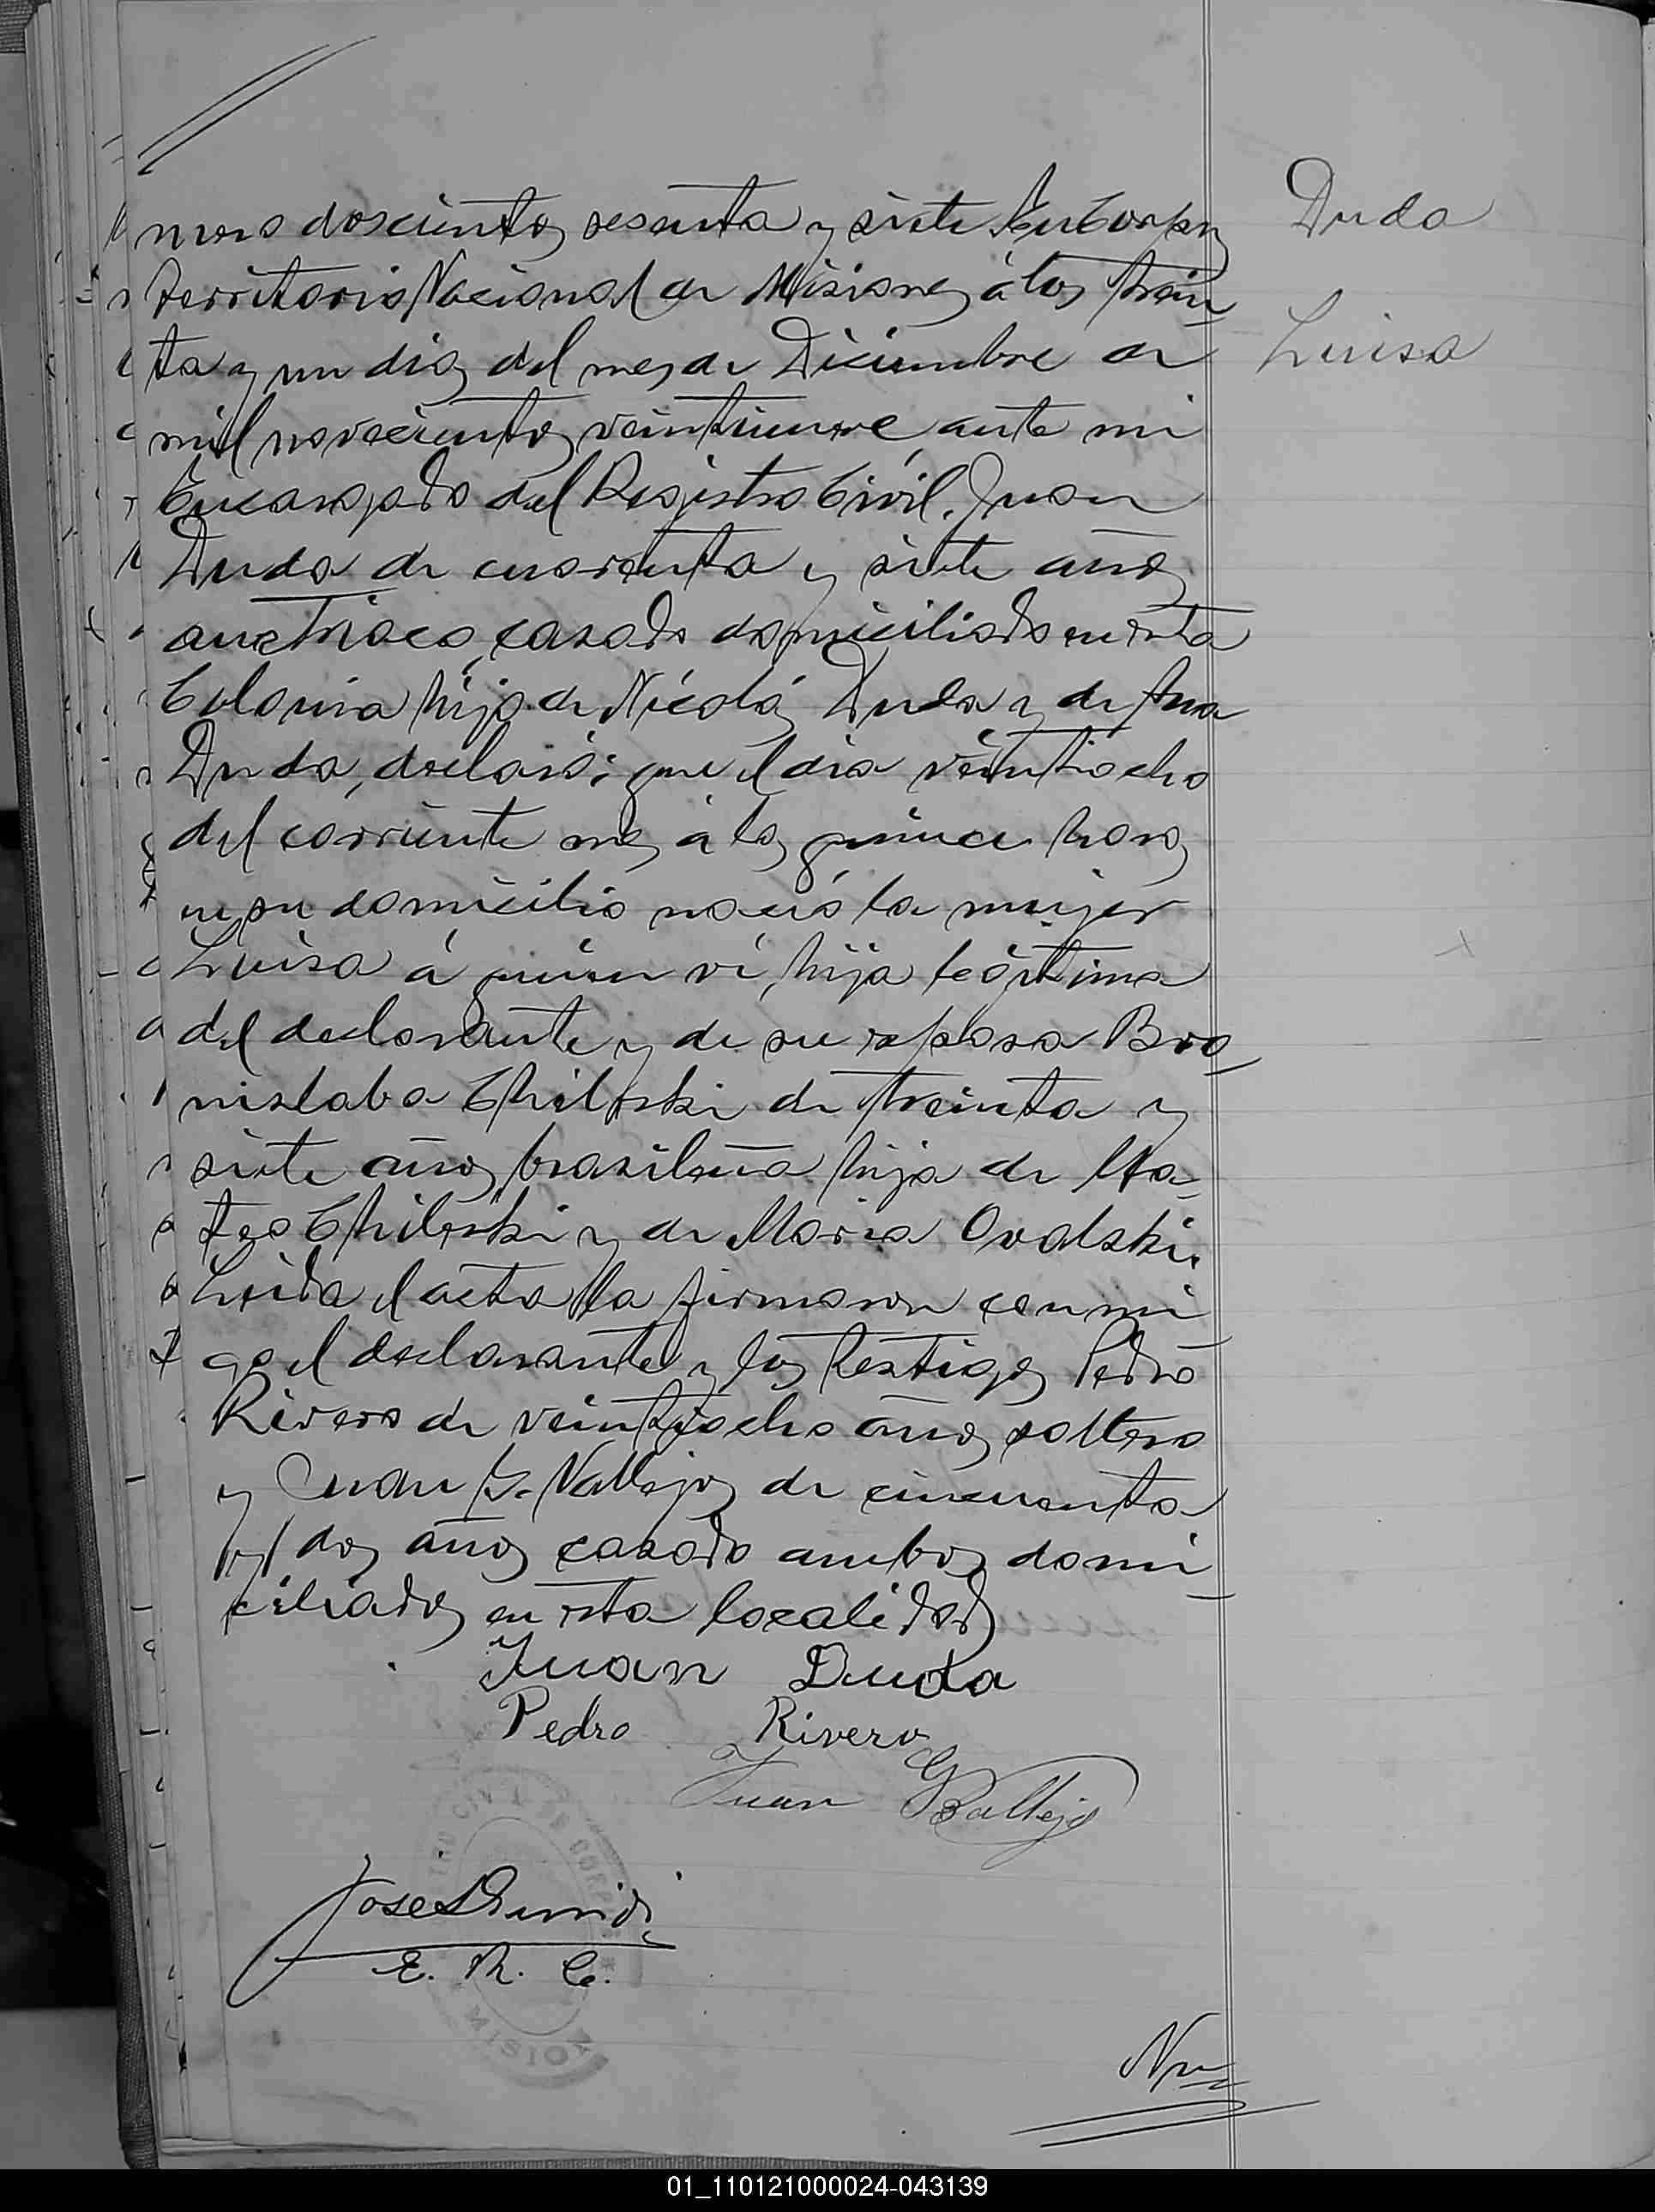 mero doscientos sesenta y siete. En Corpus
Duda
Territorio Nacional de Misiones á los trein-
Luisa
ta y un dias del mes de Diciembre de
mil novecientos veintinueve, ante mi
Encargado del Registro Civil, Juan
Duda de cuarenta y siete años
austriaco, casado domiciliado en esta
Colonia hijo de Nicolás Duda y de Ana
Duda, declaró: que el dia veintiocho
del corriente mes á las quince horas
en su domicilio nació la mujer
Luisa á quien vi, hija legitima
del declarante y de su esposa Bro-
nislaba Chileski de treinta y
siete años brasileña hija de Ma-
teo Chileski y de Maria Ovalski.
Leida el acta la firmaron conmi-
go el declarante y los testigos Pedro
Rivero de veintiocho años soltero
y Juan G. Vallejos de cincuenta
y dos años casado ambos domi-
ciliados en esta localidad
Juan Duda
Pedro Rivero
Juan G Ballejo
José
E. R. C.
CORPUS
MISIONES
Nu-
01_110121000024-043139